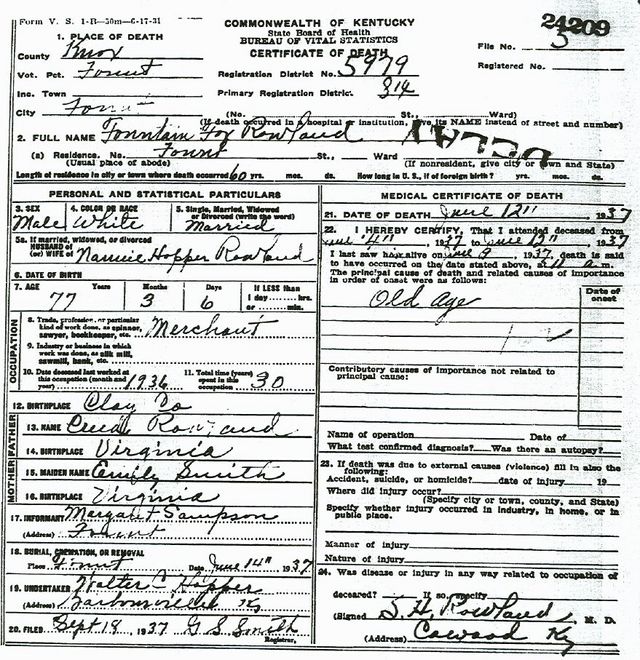 Form V. S. 1-B—50m—6-17-31
COMMONWEALTH OF KENTUCKY
State Board of Health
BUREAU OF VITAL STATISTICS
CERTIFICATE OF DEATH
24209
File No. 5
Registered No.
1. PLACE OF DEATH
County Knox
Vot. Pct. Fount
Inc. Town
City Fount
Registration District No. 5979
Primary Registration District 314
(No. St., Ward)
(If death occurred in a hospital or institution, give its NAME instead of street and number)
2. FULL NAME Fountain Fox Rowland
(a) Residence. No. Fount St., Ward
(Usual place of abode) (If nonresident, give city or town and State)
Length of residence in city or town where death occurred 60 yrs. mos. ds. How long in U. S., if of foreign birth? yrs. mos. ds.
PERSONAL AND STATISTICAL PARTICULARS
3. SEX 4. COLOR OR RACE 5. Single, Married, Widowed, or Divorced (write the word)
Male White Married
5a. If married, widowed, or divorced
HUSBAND of
(or) WIFE of Nannie Hopper Rowland
6. DATE OF BIRTH
7. AGE Years Months Days If LESS than
77 3 6 1 day hrs.
or min.
OCCUPATION
8. Trade, profession, or particular kind of work done, as spinner, sawyer, bookkeeper, etc. Merchant
9. Industry or business in which work was done, as silk mill, sawmill, bank, etc.
10. Date deceased last worked at this occupation (month and year) 1936
11. Total time (years) spent in this occupation 30
12. BIRTHPLACE Clay Co
FATHER
13. NAME Rowland
14. BIRTHPLACE Virginia
MOTHER
15. MAIDEN NAME Emily Smith
16. BIRTHPLACE Virginia
17. INFORMANT Margaret Sampson
(Address) Fount
18. BURIAL, CREMATION, OR REMOVAL
Place Fount Date June 14" 1937
19. UNDERTAKER Walter C Hopper
(Address) Barbourville Ky
20. FILED Sept 18 1937 G S Smith
Registrar.
MEDICAL CERTIFICATE OF DEATH
21. DATE OF DEATH June 12" 1937
22. I HEREBY CERTIFY, That I attended deceased from
June "4" 1937 to June 12" 1937
I last saw him alive on June 9 1937, death is said
to have occurred on the date stated above, a.m.
The principal cause of death and related causes of importance
in order of onset were as follows:
Date of onset
Old age
Contributory causes of importance not related to
principal cause:
Name of operation Date of
What test confirmed diagnosis? Was there an autopsy?
23. If death was due to external causes (violence) fill in also the
following:
Accident, suicide, or homicide? date of injury 19
Where did injury occur?
(Specify city or town, county, and State)
Specify whether injury occurred in industry, in home, or in
public place.
Manner of injury
Nature of injury
24. Was disease or injury in any way related to occupation of
deceased? If so, specify
(Signed S. H. Rowland M. D.
(Address) Cawood Ky